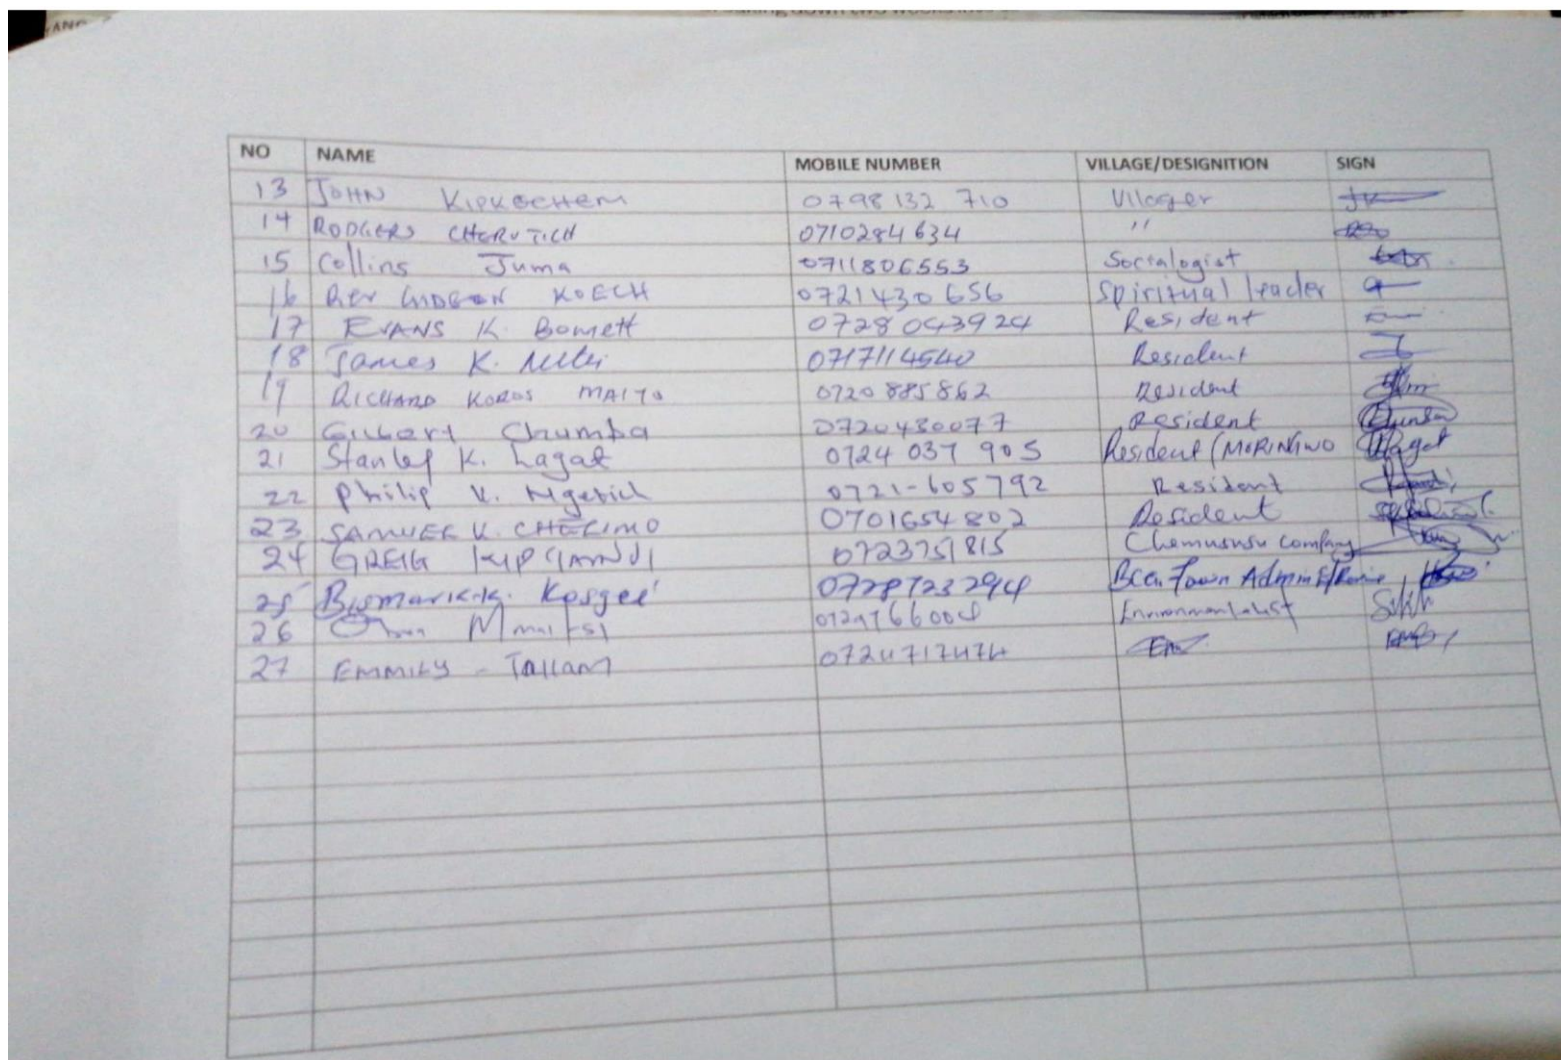 NO NAME MOBILE NUMBER VILLAGE/DESIGNITION SIGN
13 JOHN KIPKOCHEM 0798 132 710 Villager
14 RODGERS CHERUTICH 0710284634 "
15 Collins Juma 0711806553 Socialogist
16 REV GIDEON KOECH 0721430 656 Spiritual leader
17 EVANS K. Bomett 0728 043924 Resident
18 James K. 0717114540 Resident
19 RICHARD KOROS MAIYO 0720 885862 Resident
20 Gilbert Chumba 0720430077 Resident
21 Stanley K. Lagat 0724 037 905 Resident (MORINGWO
22 Philip K. Ngetich 0721-605792 Resident
23 SAMUEL K. 0701654802 Resident
24 GREIG 0723751815 Chemususu company
25 Bismarck K. Kosgei 0728723294 Town
26 Environmentalist
27 EMMILY - TALLAM 0724717474